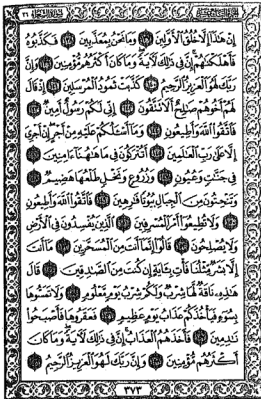 ٢٦
إِنْ هَٰذَآ إِلَّا خُلُقُ ٱلْأَوَّلِينَ وَمَا نَحْنُ بِمُعَذَّبِينَ فَكَذَّبُوهُ
فَأَهْلَكْنَٰهُمْ إِنَّ فِى ذَٰلِكَ لَءَايَةً وَمَا كَانَ أَكْثَرُهُم مُّؤْمِنِينَ وَإِنَّ
رَبَّكَ لَهُوَ ٱلْعَزِيزُ ٱلرَّحِيمُ كَذَّبَتْ ثَمُودُ ٱلْمُرْسَلِينَ إِذْ قَالَ
لَهُمْ أَخُوهُمْ صَٰلِحٌ أَلَا تَتَّقُونَ إِنِّى لَكُمْ رَسُولٌ أَمِينٌ
فَٱتَّقُوا۟ ٱللَّهَ وَأَطِيعُونِ وَمَآ أَسْـَٔلُكُمْ عَلَيْهِ مِنْ أَجْرٍ إِنْ أَجْرِىَ
إِلَّا عَلَىٰ رَبِّ ٱلْعَٰلَمِينَ أَتُتْرَكُونَ فِى مَا هَٰهُنَآ ءَامِنِينَ
فِى جَنَّٰتٍ وَعُيُونٍ وَزُرُوعٍ وَنَخْلٍ طَلْعُهَا هَضِيمٌ
وَتَنْحِتُونَ مِنَ ٱلْجِبَالِ بُيُوتًا فَٰرِهِينَ فَٱتَّقُوا۟ ٱللَّهَ وَأَطِيعُونِ
وَلَا تُطِيعُوٓا۟ أَمْرَ ٱلْمُسْرِفِينَ ٱلَّذِينَ يُفْسِدُونَ فِى ٱلْأَرْضِ
وَلَا يُصْلِحُونَ قَالُوٓا۟ إِنَّمَآ أَنتَ مِنَ ٱلْمُسَحَّرِينَ مَآ أَنتَ
إِلَّا بَشَرٌ مِّثْلُنَا فَأْتِ بِـَٔايَةٍ إِن كُنتَ مِنَ ٱلصَّٰدِقِينَ قَالَ
هَٰذِهِۦ نَاقَةٌ لَّهَا شِرْبٌ وَلَكُمْ شِرْبُ يَوْمٍ مَّعْلُومٍ وَلَا تَمَسُّوهَا
بِسُوٓءٍ فَيَأْخُذَكُمْ عَذَابُ يَوْمٍ عَظِيمٍ فَعَقَرُوهَا فَأَصْبَحُوا۟
نَٰدِمِينَ فَأَخَذَهُمُ ٱلْعَذَابُ إِنَّ فِى ذَٰلِكَ لَءَايَةً وَمَا كَانَ
أَكْثَرُهُم مُّؤْمِنِينَ وَإِنَّ رَبَّكَ لَهُوَ ٱلْعَزِيزُ ٱلرَّحِيمُ
٣٧٣